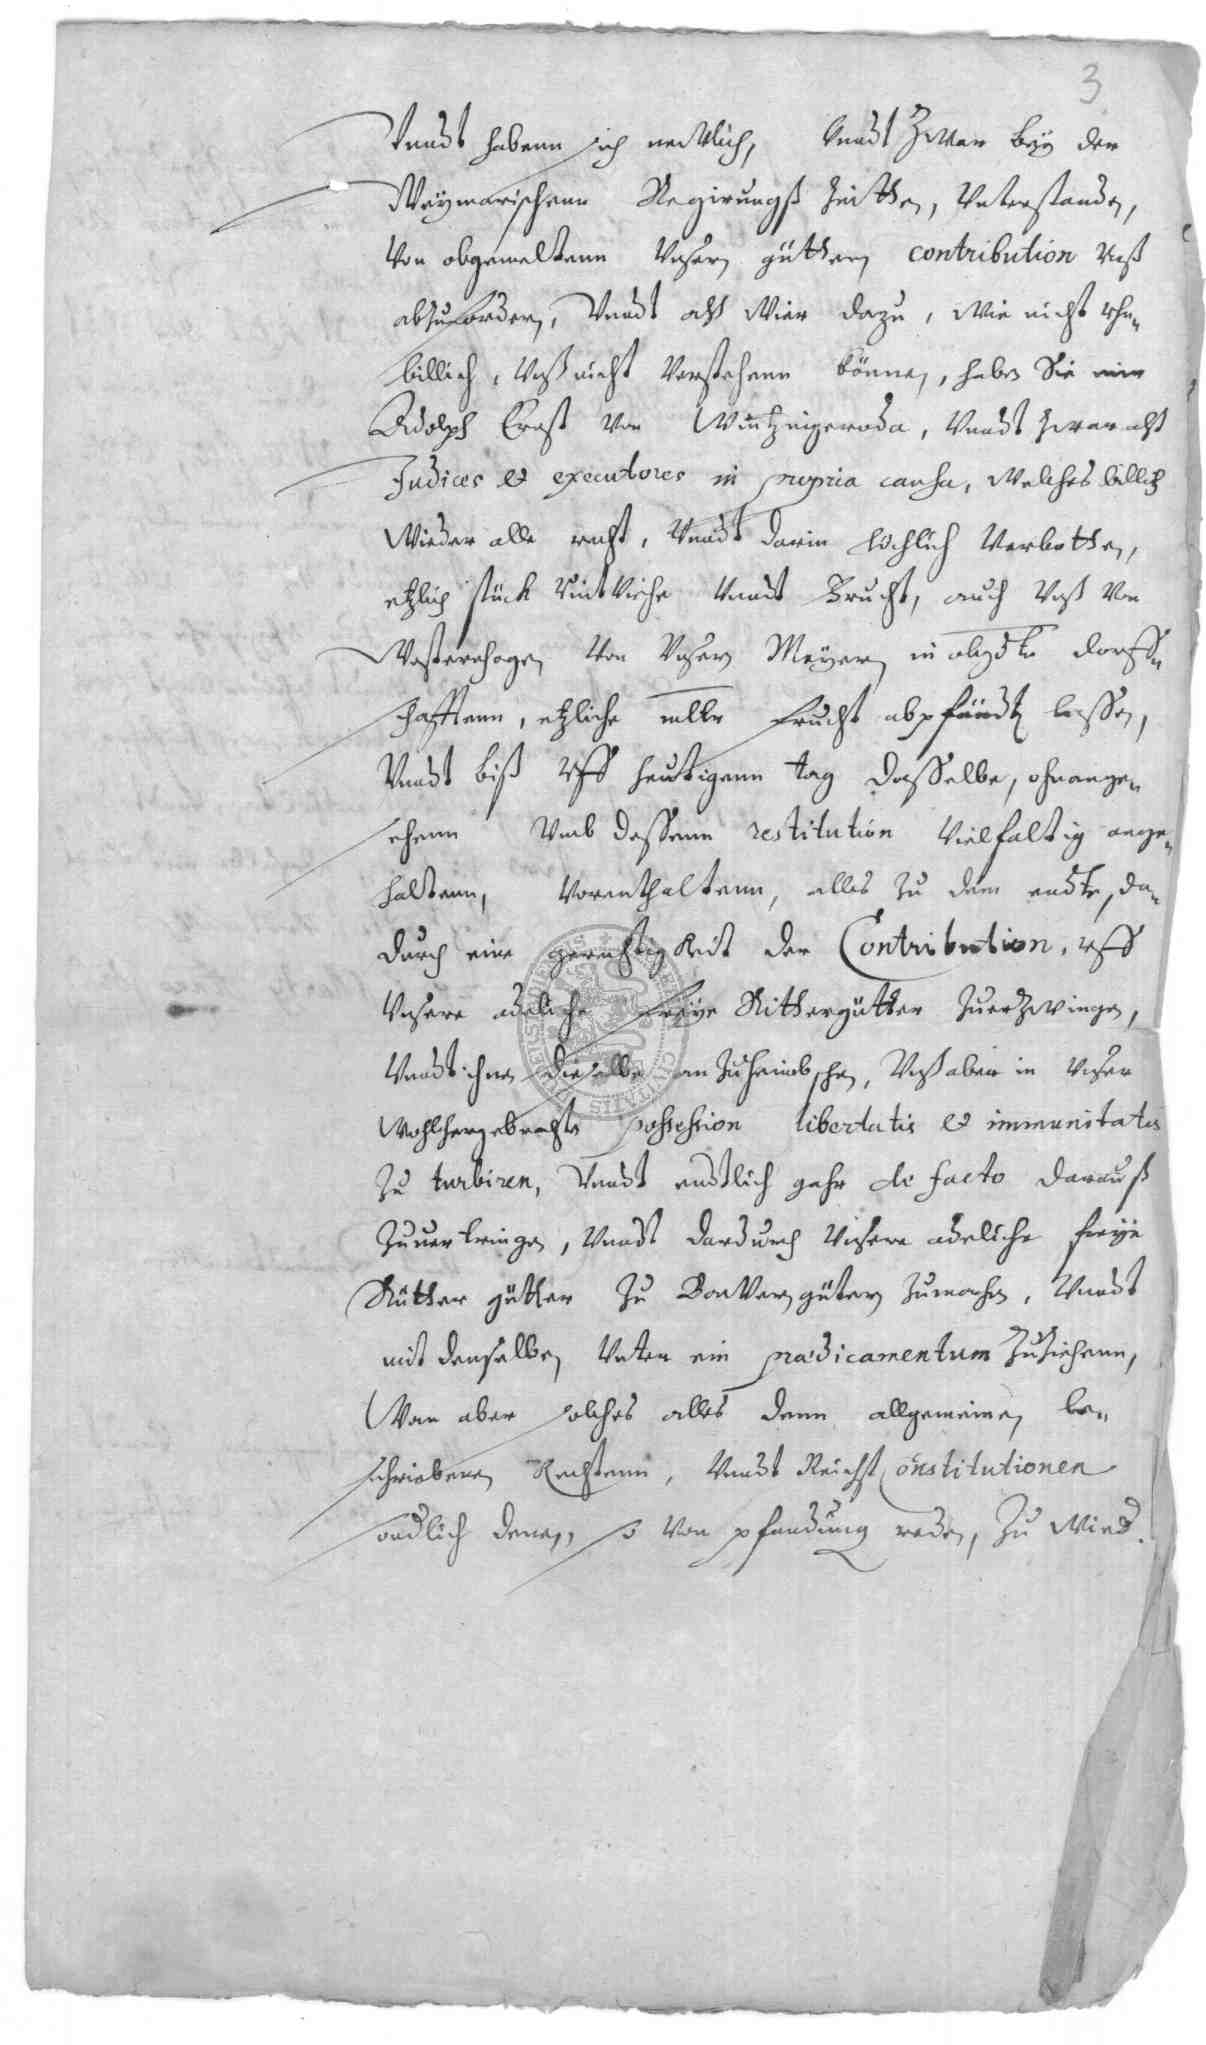 3
Vnndt habenn sich newlich, Vnndt Zwar bey der
Weymarischenn Regirungß Zeitten, Vnterstanden,
Von obgemeltenn Vnsern güttern contribution Vnß
abzufordern, Vnndt alß Wier dazu, Wie nicht ohn„
billich, Vnß nicht Verstehenn können, haben Sie mir
Adolph Ernst Von Wintzingeroda, Vnndt Zwar alß
Judices et executores in propria causa, Welches billich
Wieder alle recht, Vnndt darin höchlich Verbotten,
etzlich stück RindtViehe Vnndt Frucht, auch Vnß Von
Westernhagen Von Vnsern Meyern in obgdten dorff„
schafftenn, etzliche Frucht abpfändt lassen,
Vnndt biß vff heutigenn tag dasselbe, ohnange„
sehenn Vmb dessenn restitution Vielfaltig ange„
haltenn, Vorenthaltenn, alles Zu dem endte, da„
durch eine gerechtigkeit der Contribution, vff
Vnsere adeliche freye Rittergütter Zuerzwingen,
Vnndt ihnen dieselbe an Zuheimbschen, Vnß aber in Vnser
Wohlhergebrachte possession libertatis et immunitatis
Zu turbiren, Vnndt endtlich gahr de facto darauß
Zuuertringen, Vnndt dardurch Vnsere adeliche freye
Ritter gütter Zu BauVern gütern Zumachen, Vnndt
mit denselben Vnter ein praedicamentum Zuziehenn,
Wan aber solches alles denn allgemeinen be„
schriebenen Rechtenn, Vnndt Reichst Constitutionen
sondlich denen, so Von pfandung reden, Zu Wied.